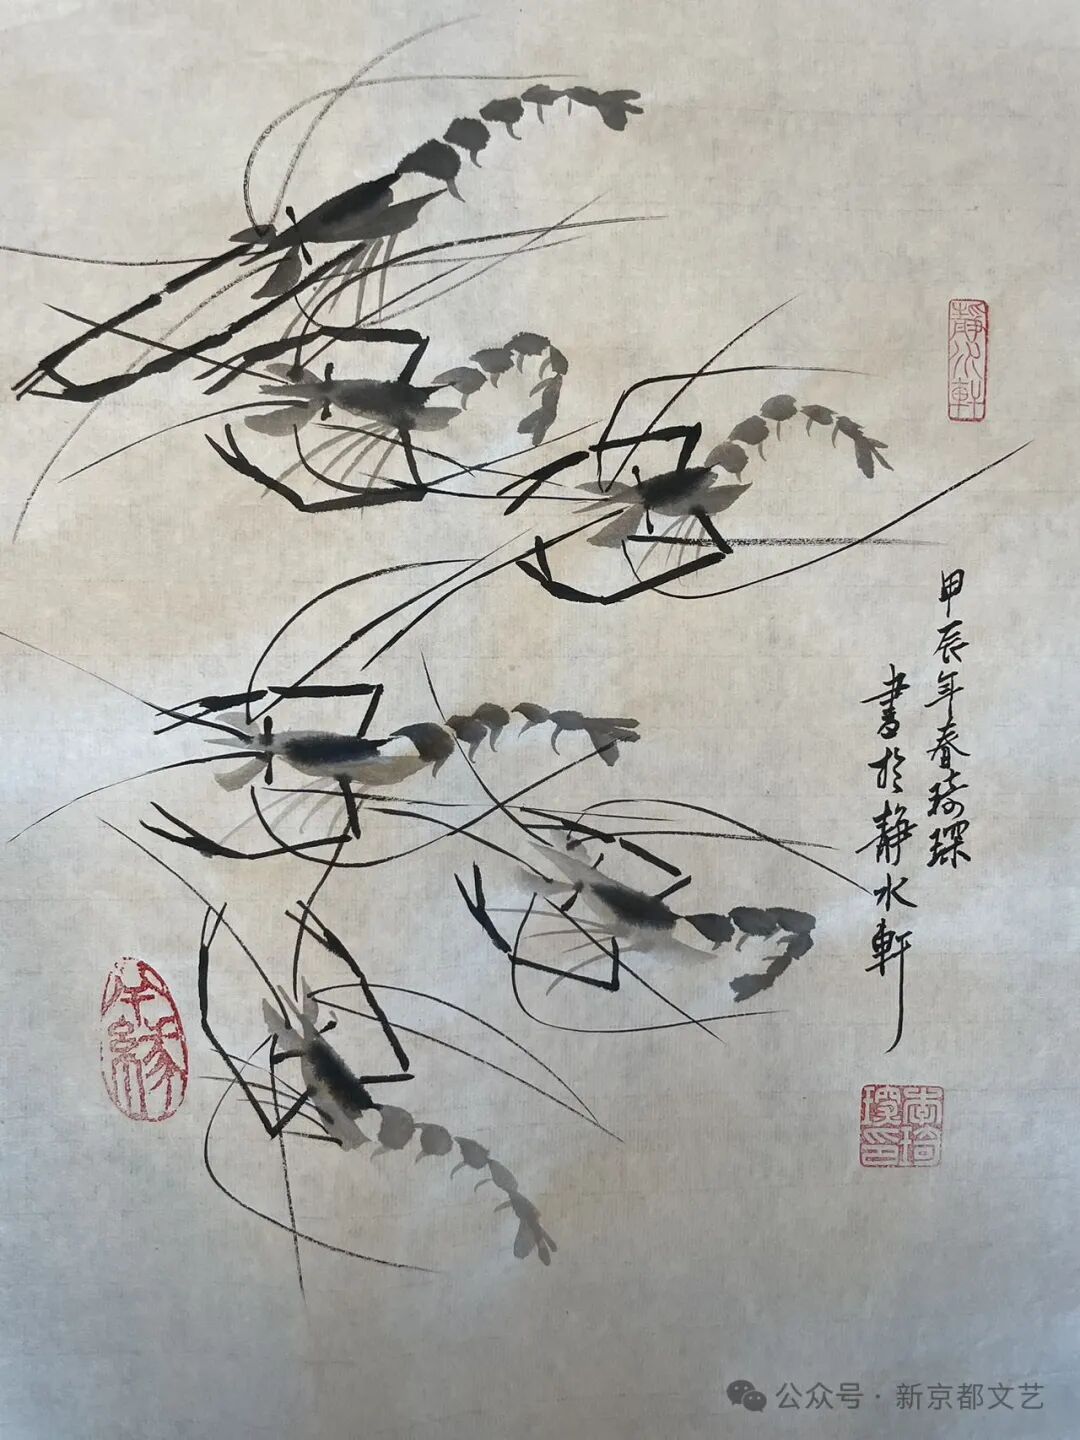 靜水軒
甲辰年春琦琛
書於靜水軒
公众号·新京都文艺